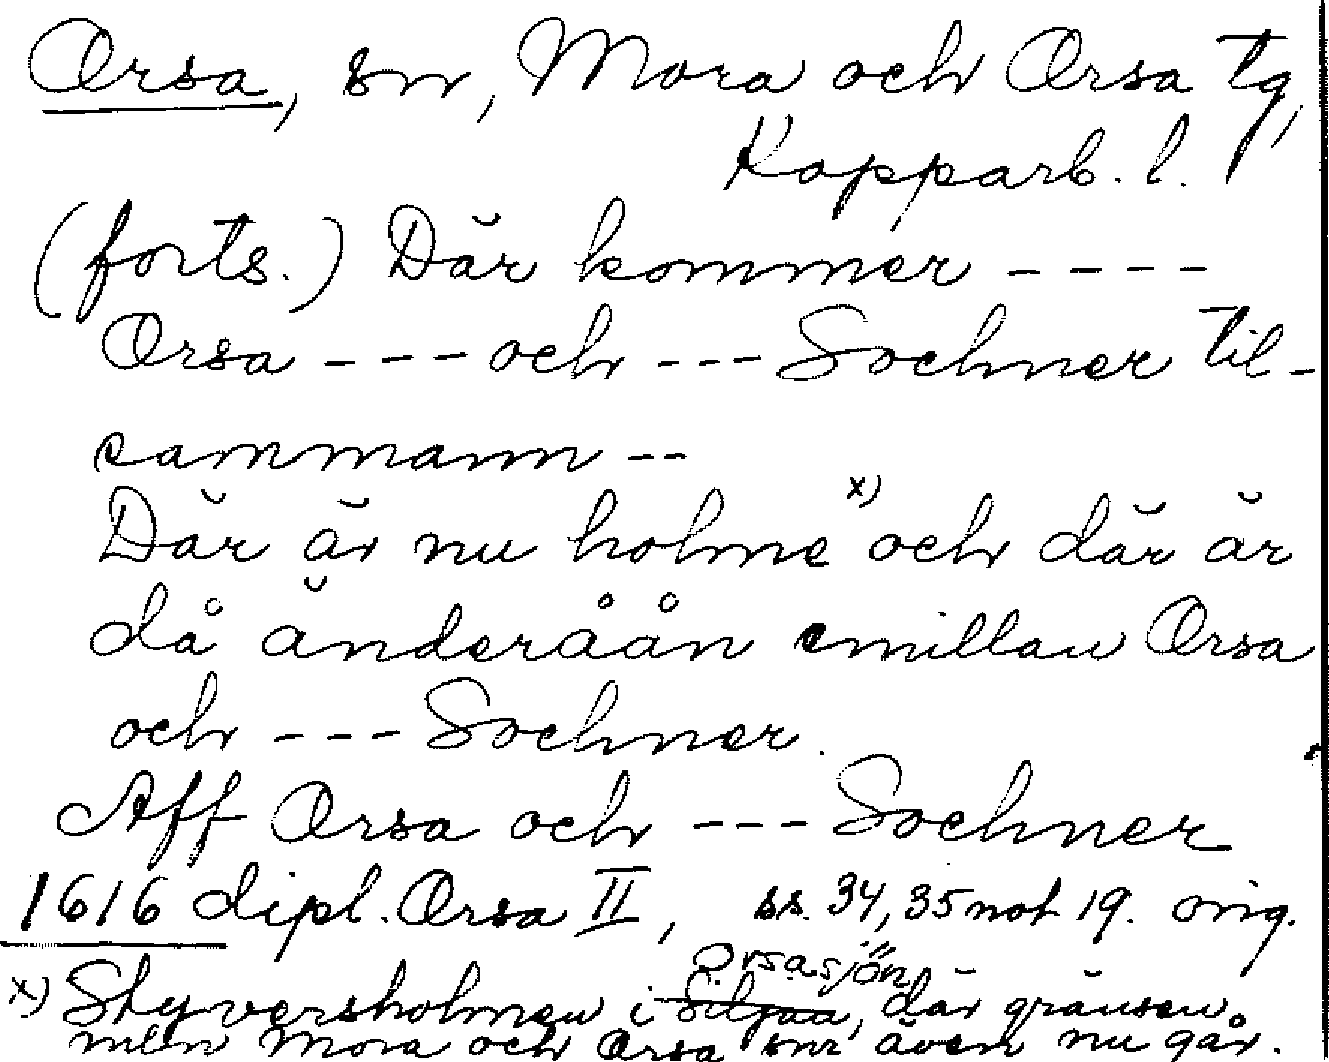 Orsa, sn, Mora och Orsa tg,
Kopparb. l.
(forts.) Där kommer ----
Orsa --- och --- Sochner til-
sammann --
Där är nu holme x) och där är
då änderåån emillan Orsa
och --- Sochner.
Aff Orsa och --- Sochner
1616 dipl. Orsa II, ss. 34, 35 not 19. orig.
Orsasjön
x) Styversholmen i Siljan, där gränsen
mln Mora och Orsa snr även nu går.